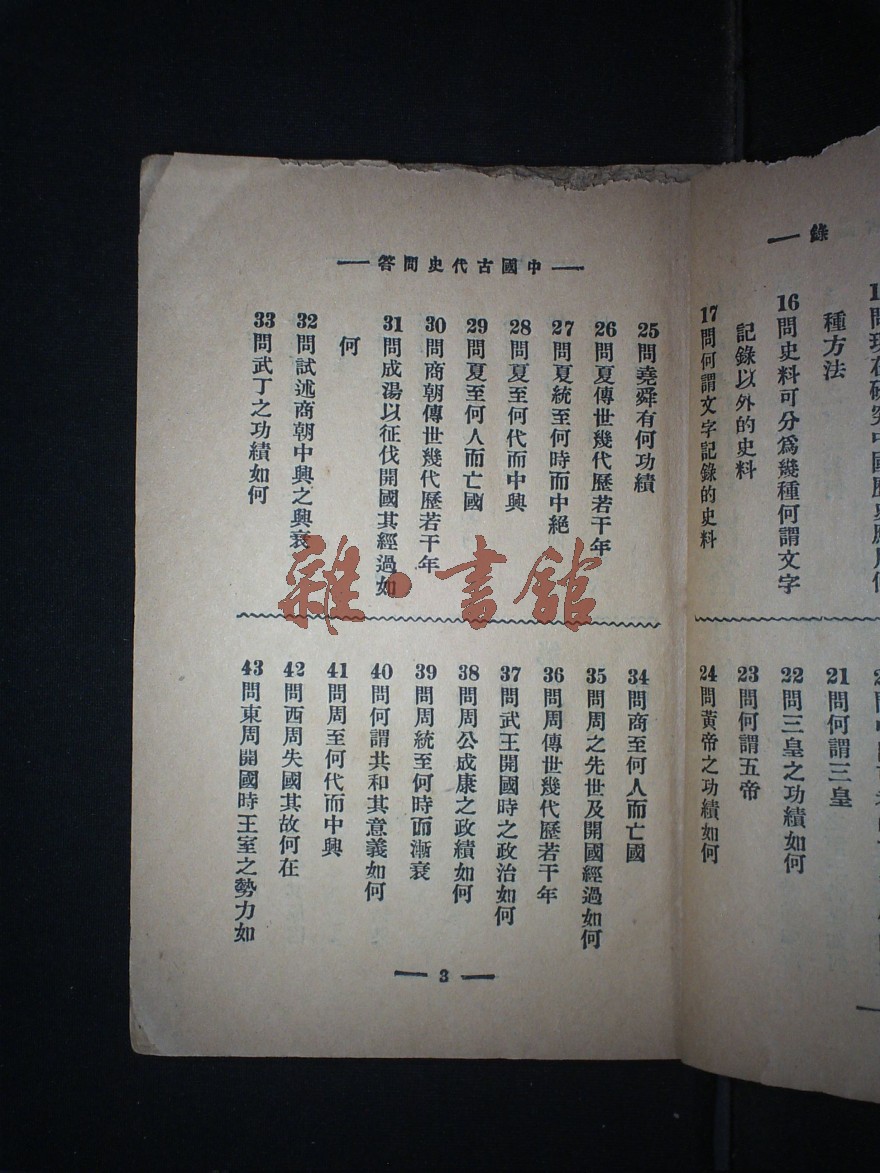 錄
種方法
16問史料可分爲幾種何謂文字
記錄以外的史料
17問何謂文字記錄的史料
21問何謂三皇
22問三皇之功績如何
23問何謂五帝
24問黃帝之功績如何
中國古代史問答
25問堯舜有何功績
26問夏傳世幾代歷若干年
27問夏統至何時而中絕
28問夏至何代而中興
29問夏至何人而亡國
30問商朝傳世幾代歷若干年
31問成湯以征伐開國其經過如
何
32問試述商朝中興之興衰
33問武丁之功績如何
34問商至何人而亡國
35問周之先世及開國經過如何
36問周傳世幾代歷若干年
37問武王開國時之政治如何
38問周公成康之政績如何
39問周統至何時而漸衰
40問何謂共和其意義如何
41問周至何代而中興
42問西周失國其故何在
43問東周開國時王室之勢力如
3
雜·書館